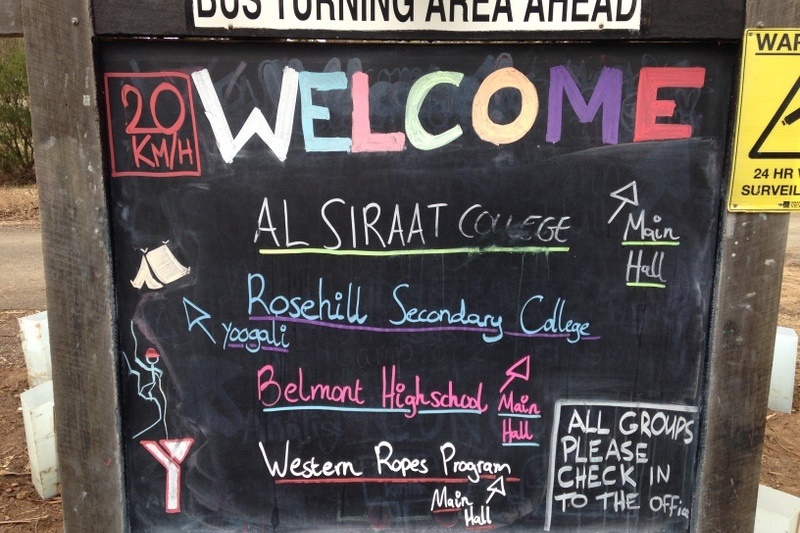 BUS TURNING AREA AHEAD
20
KM/H
WELCOME
AL SIRAAT COLLEGE
Main
Hall
Rosehill Secondary College
Yoogali
Belmont Highschool
Main
Hall
Western Ropes Program
Main
Hall
Y
ALL GROUPS
PLEASE
CHECK IN
TO THE OFFic
24 HR